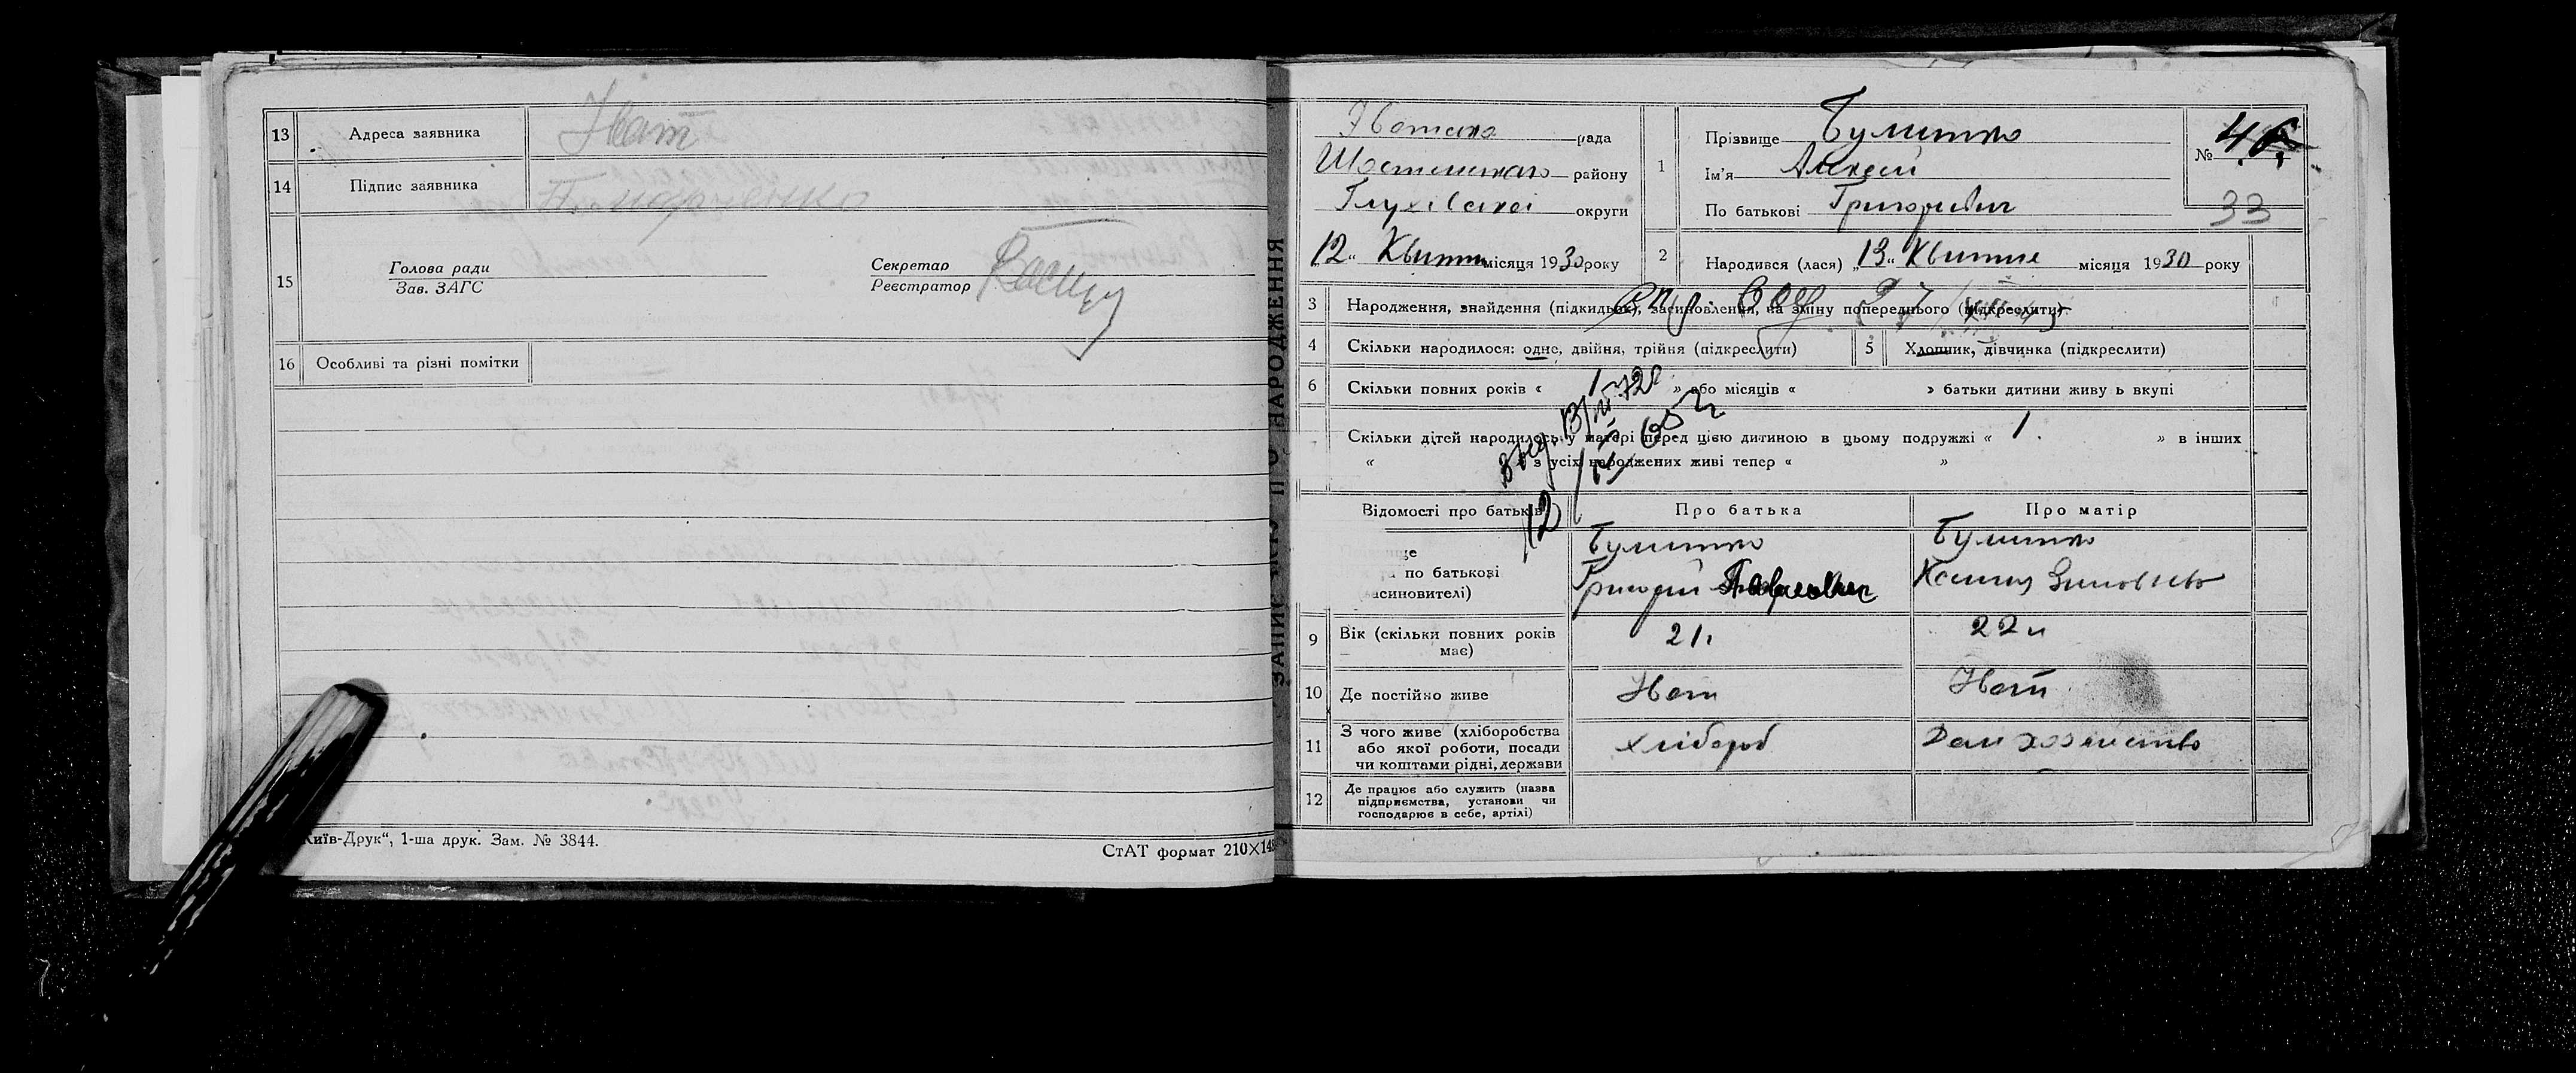 13 Адреса заявника Іват
14 Підпис заявника
15 Голова ради
Зав. ЗАГС
Секретар
Реєстратор
16 Особливі та різні помітки
"Київ-Друк“, 1-ша друк. Зам. № 3844.
СтАТ формат 210×148
НАРОДЖЕННЯ
рада
Шостинского району
Глухівскої округи
„12“ Квітня місяця 1930 року
1 Прізвище Булитко
Ім'я Алексей
По батькові Григорович
№ 46
33
2 Народився (лася) „13“ Квітня місяця 1930 року
3 Народження, знайдення (підкидьок), засиновлення, на зміну попереднього (підкреслити)
4 Скільки народилося: одне, двійня, трійня (підкреслити)
5 Хлопчик, дівчинка (підкреслити)
6 Скільки повних років « 1 » або місяців « » батьки дитини живуть вкупі
Скільки дітей народилось у матері перед цією дитиною в цьому подружжі « 1. » в інших
« з усіх народжених живі тепер « »
Відомості про батьків
Про батька
Про матір
по батькові
Булитко
Григорій Павлович
Булитко
9 Вік (скільки повних років має) 21. 22
10 Де постійно живе Іват Іват
11 З чого живе (хліборобства або якої роботи, посади чи коштами рідні, держави хлібороб Дом хозяйство
12 Де працює або служить (назва підприємства, установи чи господарює в себе, артілі)